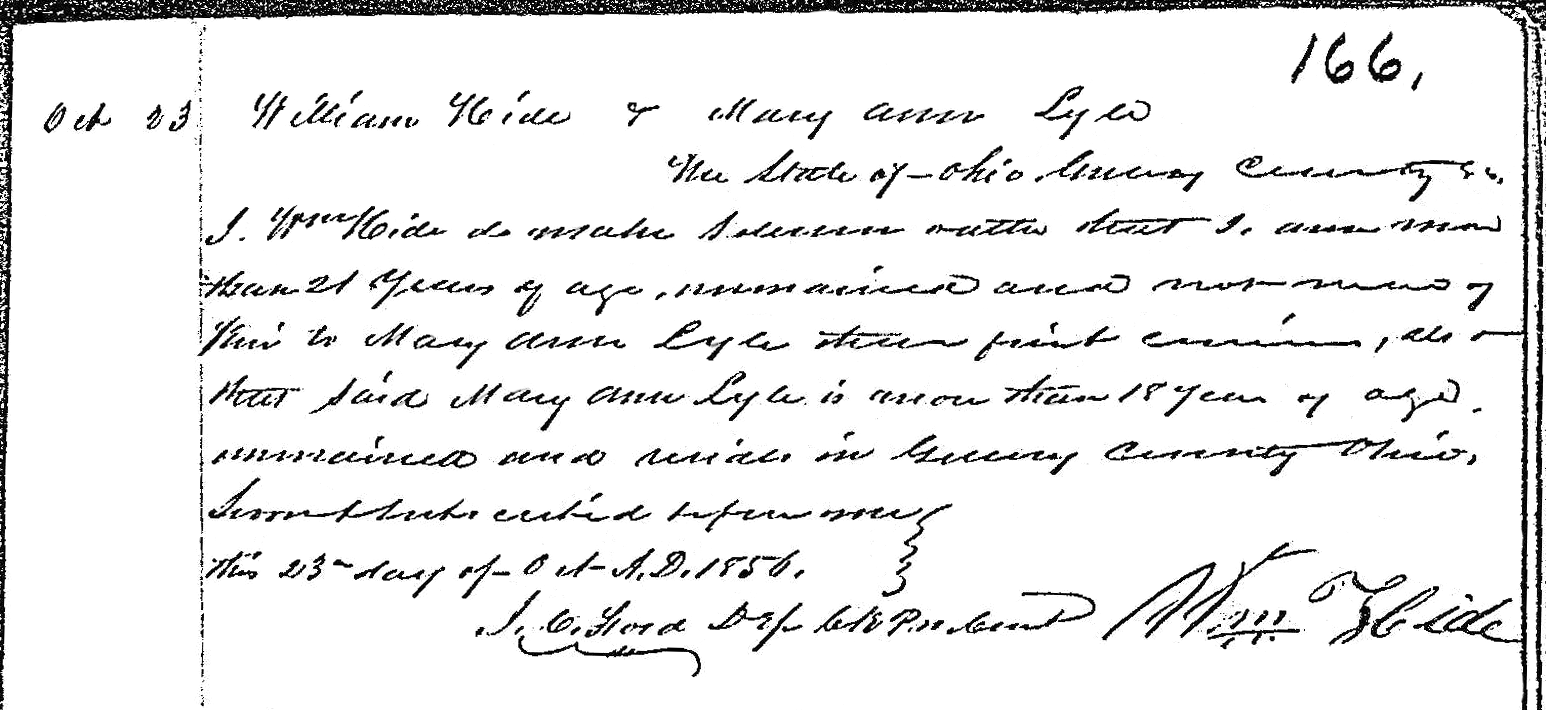 166.
Oct 23 William Hide & Mary Ann Lyle
The State of Ohio. Guernsey County ss.
I. Wm Hide do make Solemn oathe that I. am more
than 21 Years of age, unmarried and not near of
Kin to Mary Ann Lyle than first cousins, also
that Said Mary Ann Lyle is more than 18 Years of age.
unmarried and reside in Guernsey County Ohio,
Sworn & Subscribed before me
this 23rd day of Oct A.D. 1856.
J. C. Ford Dep Clk Pro Court Wm Hide